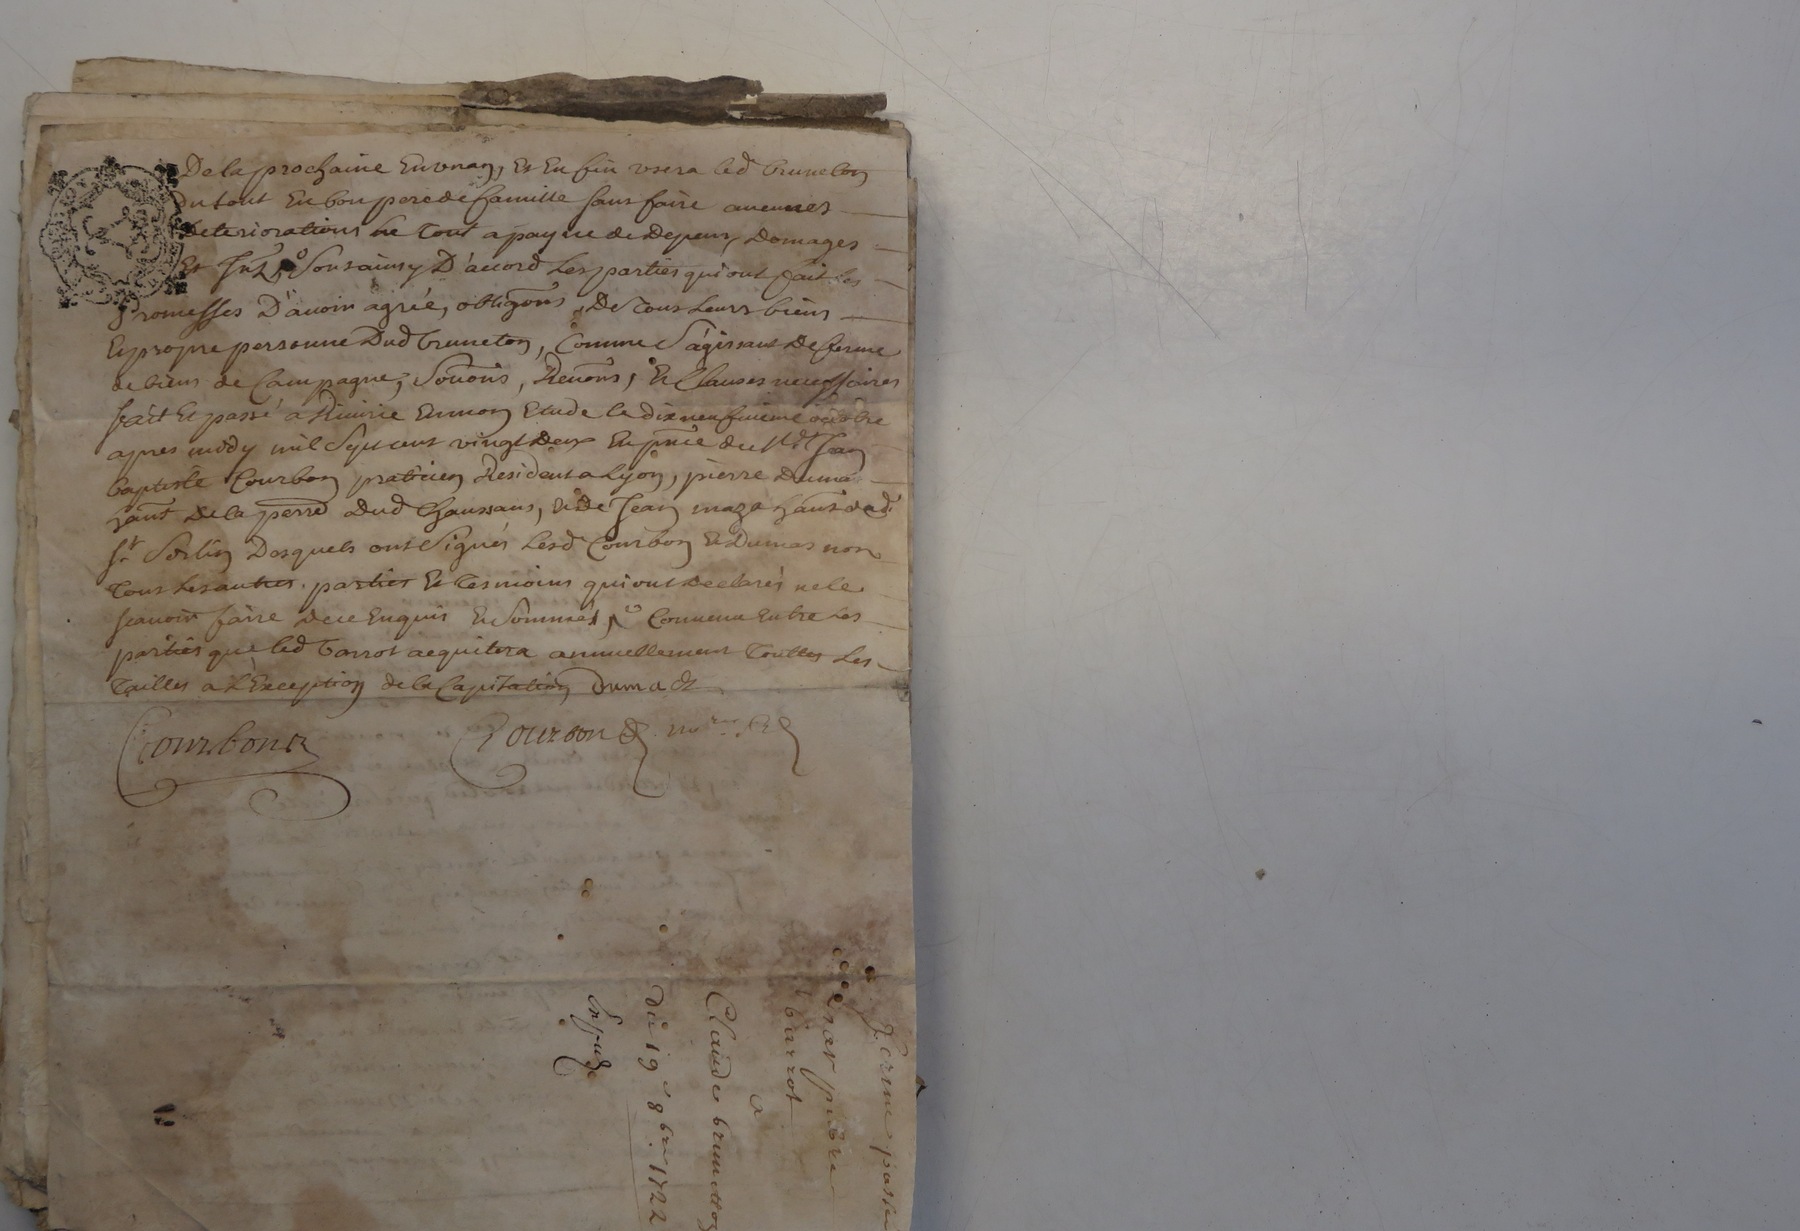 De la prochaine En un an, Et En fin usera led brunelon
Du tout En bon pere de famille sans faire aucunes
Deteriorations le Tout a payne de Depens, Domages
Et Sont ainsy D'accord Les parties qui ont fait les
promesses D'avoir agrée, obligons, De Tous Leurs biens
Et propre personne Dud bruneton, Comme S'agissant De ferme
de biens de Campagne, Soûons, Renons, Et Clauses necessaires
fait Et passé a Riuirie En mon Etude le dix neufuieme octobre
apres midy mil Sept cent vingt Deux En pnce de Sr Jean
baptiste Courbon praticien Resident a Lyon, pierre Dumas
hant De la perre Dud Chaussans, Et De Jean maza hant dud
St Sorlin Desquels ont Signés Lesd Courbon Et Dumas non
Tous Les autres parties Et Tesmoins qui ont declarés ne le
scavoir faire De ce Enquis Et Sommés, Convenu Entre Les
parties que led barrot aequitera annuellement Touttes Les
Tailles a L'Exception de la Capitation Dumas
Courbon
Courbon
ferme passée
par pierre
barrot
a
Claude brunetton
Du 19e 8bre 1722
Expedé